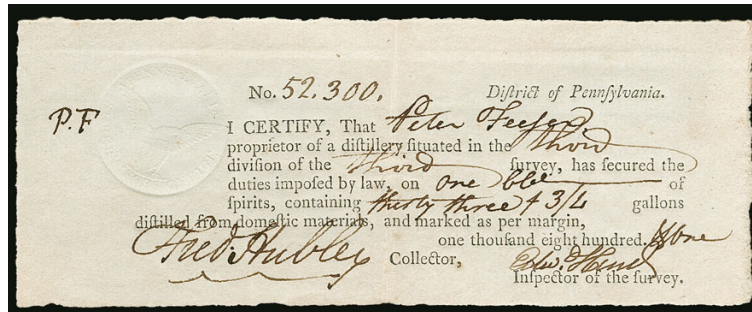 No. 52.300. Diſtrict of Pennſylvania.
P.F
I CERTIFY, That Peter
proprietor of a diſtillery ſituated in the third
diviſion of the third ſurvey, has ſecured the
duties impoſed by law, on one bbl of
ſpirits, containing thirty three & 3/4 gallons
diſtilled from domeſtic materials, and marked as per margin,
one thouſand eight hundred, & one
Fred. Hubley Collector,
Inſpector of the ſurvey.